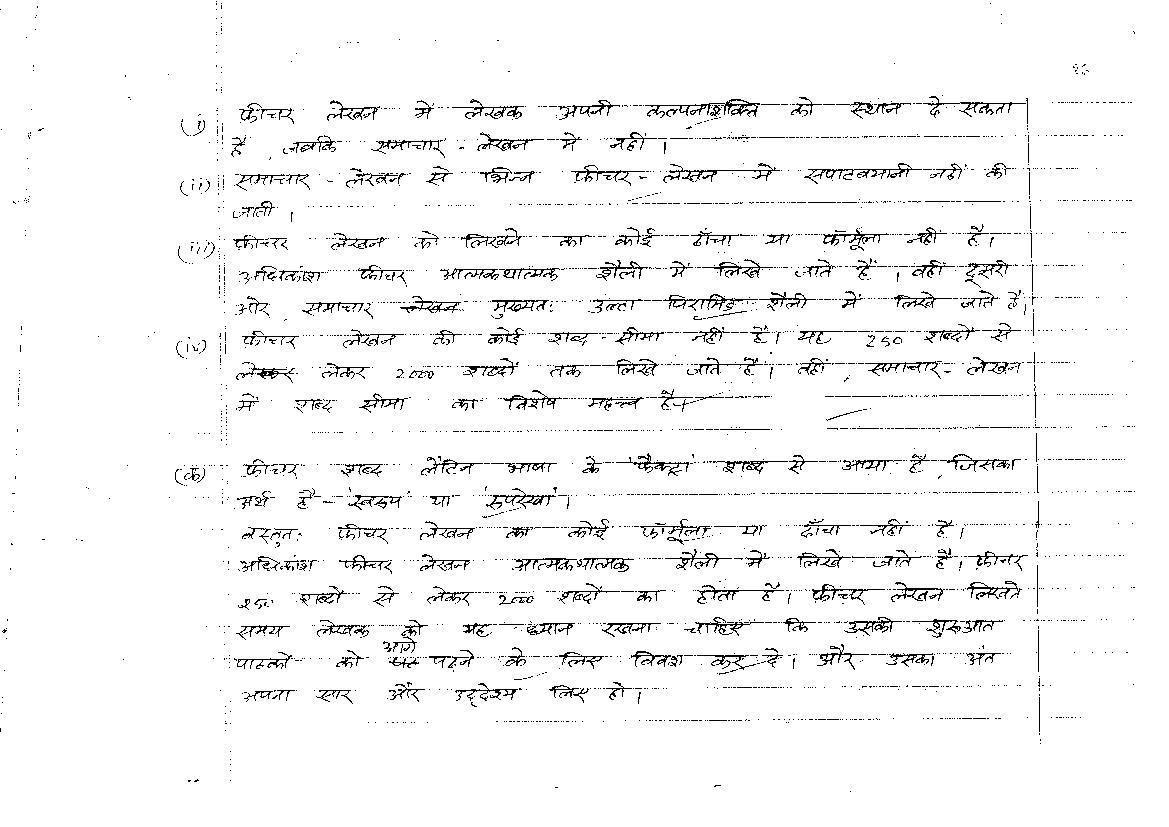 १६
(i) फीचर लेखन में लेखक अपनी कल्पनाशक्ति को स्थान दे सकता
है, जबकि समाचार - लेखन में नहीं।
(ii) समाचार - लेखन से भिन्न फीचर - लेखन में सपाटबयानी नहीं की
जाती।
(iii) फीचर लेखन को लिखने का कोई ढाँचा या फॉर्मूला नहीं है।
अधिकांश फीचर आत्मकथात्मक शैली में लिखे जाते हैं। वहीं दूसरी
ओर, समाचार लेखन मुख्यतः उल्टा पिरामिड शैली में लिखे जाते हैं।
(iv) फीचर लेखन की कोई शब्द - सीमा नहीं है। यह 250 शब्दों से
लेकर 2000 शब्दों तक लिखे जाते हैं। वहीं, समाचार - लेखन
में शब्द सीमा का विशेष महत्त्व है।
(क) फीचर शब्द लैटिन भाषा के 'फैक्ट्रा' शब्द से आया है, जिसका
अर्थ है - 'स्वरुप' या 'रुपरेखा'।
वस्तुतः फीचर लेखन का कोई फॉर्मूला या ढाँचा नहीं है।
अधिकांश फीचर लेखन आत्मकथात्मक शैली में लिखे जाते हैं। फीचर
250 शब्दों से लेकर 2000 शब्दों का होता है। फीचर लेखन लिखते
समय लेखक को यह ध्यान रखना चाहिए कि उसकी शुरुआत
पाठकों को आगे पढ़ने के लिए विवश कर दे। और उसका अंत
अपना सार और उद्देश्य लिए हो।